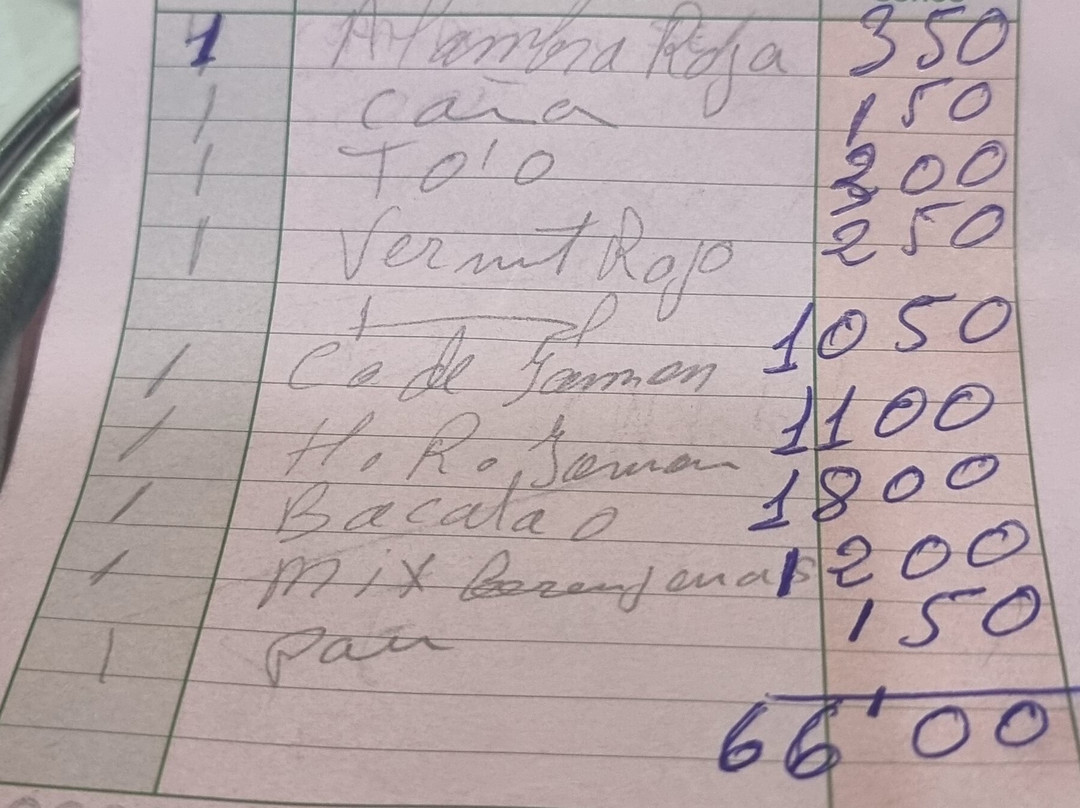 1 Alhambra Roja 350
1 Caña 150
1 To'o 200
1 Vermut Rojo 250
1 Ca de Jamon 1050
1 H. R. Jamon 1100
1 Bacalao 1800
1 Mix Berenjenas 1200
1 Pan 150
66'00